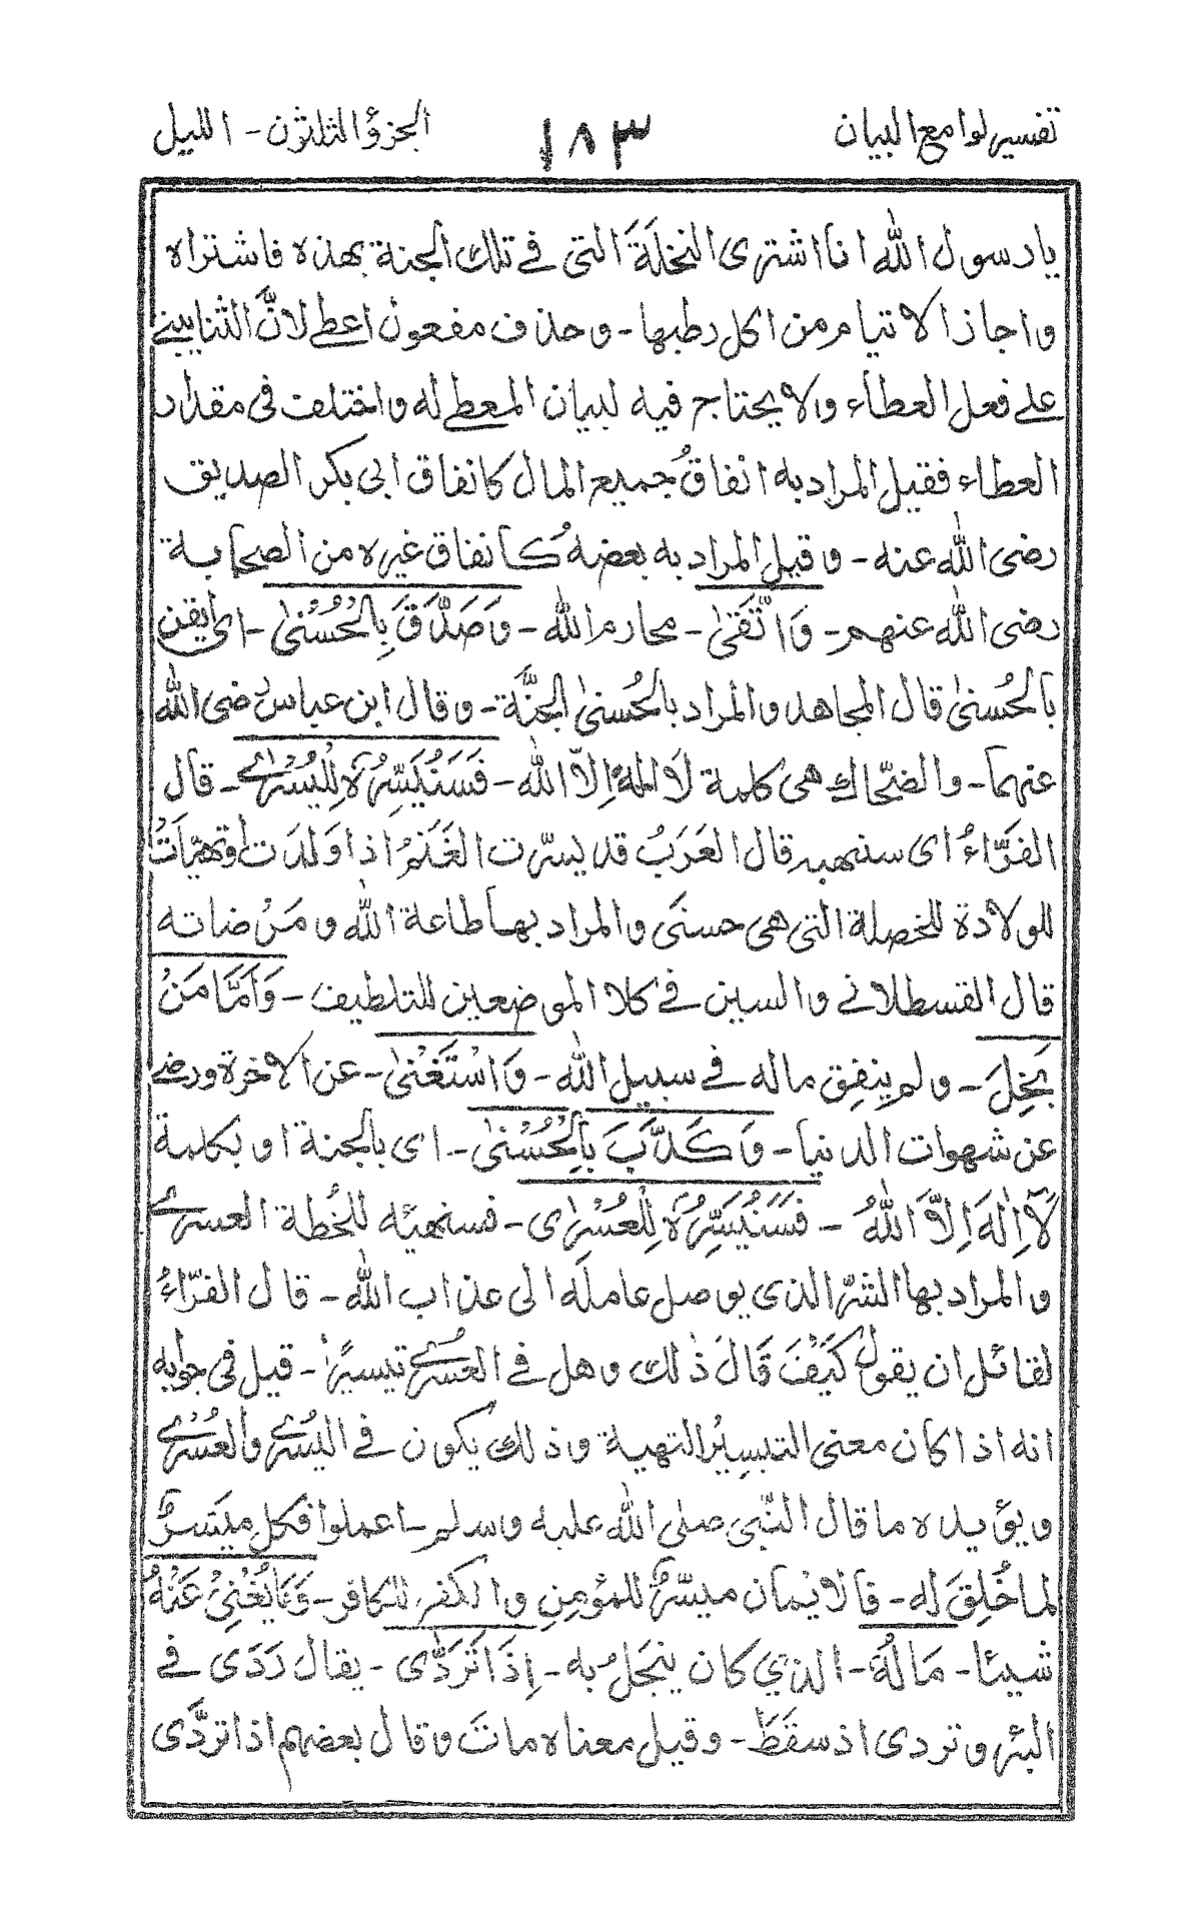 تفسير لوامع البيان ١٨٣ الجزؤ الثلثون - الليل
يا رسول الله انا اشترى النخلَةَ التى فى تلك الجنة بهذه فاشتراه
واجاز الايتام من اكل رطبها - وحذف مفعول اعطى لانَّ الثنا يبنى
على فعل العطاء ولا يحتاج فيه لبيان المعطى له واختلف فى مقدار
العطاء فقيل المراد به انفاقُ جميع المال كانفاق ابى بكر الصديق
رضى الله عنه - وقيل المراد به بعضهُ كانفاق غيره من الصحابة
رضى الله عنهم - وَاتَّقىٰ - محارم الله - وَصَدَّقَ بِالْحُسْنىٰ - اى ايقن
بالحُسنىٰ قال المجاهد والمراد بالحُسنىٰ الجنَّة - وقال ابن عباس رضى الله
عنهما - والضحّاك هى كلمة لَا الٰهَ اِلاّ الله - فَسَنُيَسِّرُهٗ لِلْيُسْرٰى - قال
الفَرَّاءُ اى سنهيه قال العَرَبُ قد يسّرت الغَنَمُ اذا وَلَدَت وتهيّأتْ
للولادة للخصلة التى هى حسنَى والمراد بها طاعة الله ومَرْضاته
قال القسطلانى والسين فى كلا الموضعين للتلطيف - وَاَمَّا مَنْۢ
بَخِلَ - ولم ينفِق ماله فى سبيل الله - وَاسْتَغْنىٰ - عن الاخرة ورضى
عن شهوات الدنيا - وَكَذَّبَ بِالْحُسْنىٰ - اى بالجنة او بكلمة
لَآ اِلٰهَ اِلاَّ اللهُ - فَسَنُيَسِّرُهٗ لِلْعُسْرٰى - فسنهيئه للخُطة العسرى
والمراد بها الشرّ الذى يوصل عاملَه الى عذاب الله - قال الفرّاءُ
لقائل ان يقول كَيْفَ قَالَ ذٰلك وهل فى العُسرى تيسيرًا - قيل فى جوابه
انه اذا كان معنى التيسِيْر التهية وذلك يكون فى اليُسرى والعُسْرى
ويؤيده ما قال النَّبى صلى الله عليه وسلم - اعملوا فكل ميَسرٌ
لما خُلِقَ له - فالايمان ميسَّرٌ للمؤمِنِ والكفر للكافر - وَمَا يُغْنِىْ عَنْهُ
شيئا - مَالُهٗ - الذي كان يبخل به - اِذَا تَرَدّٰى - يقال رَدَى فى
البئر وتردى اذ سقَطَ - وقيل معناه ماتَ وقال بعضهم اذا تردَّى